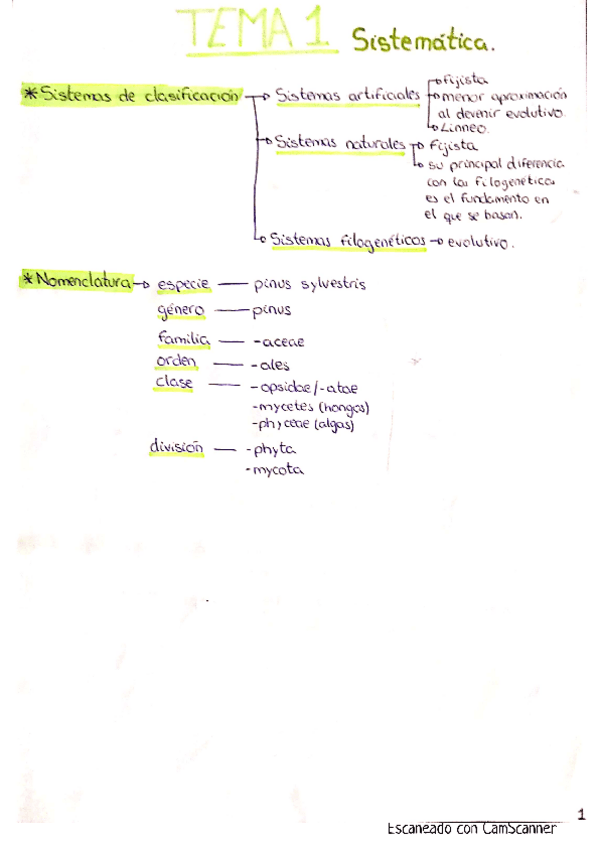 TEMA 1 Sistemática.
*Sistemas de clasificación → Sistemas artificiales → Fijista
→ menor aproximación
al devenir evolutivo.
→ Linneo.
→ Sistemas naturales → Fijista
→ su principal diferencia
con los filogenéticos
es el fundamento en
el que se basan.
→ Sistemas filogenéticos → evolutivo.
*Nomenclatura → especie — pinus sylvestris
género — pinus
familia — -aceae
orden — -ales
clase — -opsidae/-atae
-mycetes (hongos)
-phyceae (algas)
división — -phyta
-mycota
1
Escaneado con CamScanner